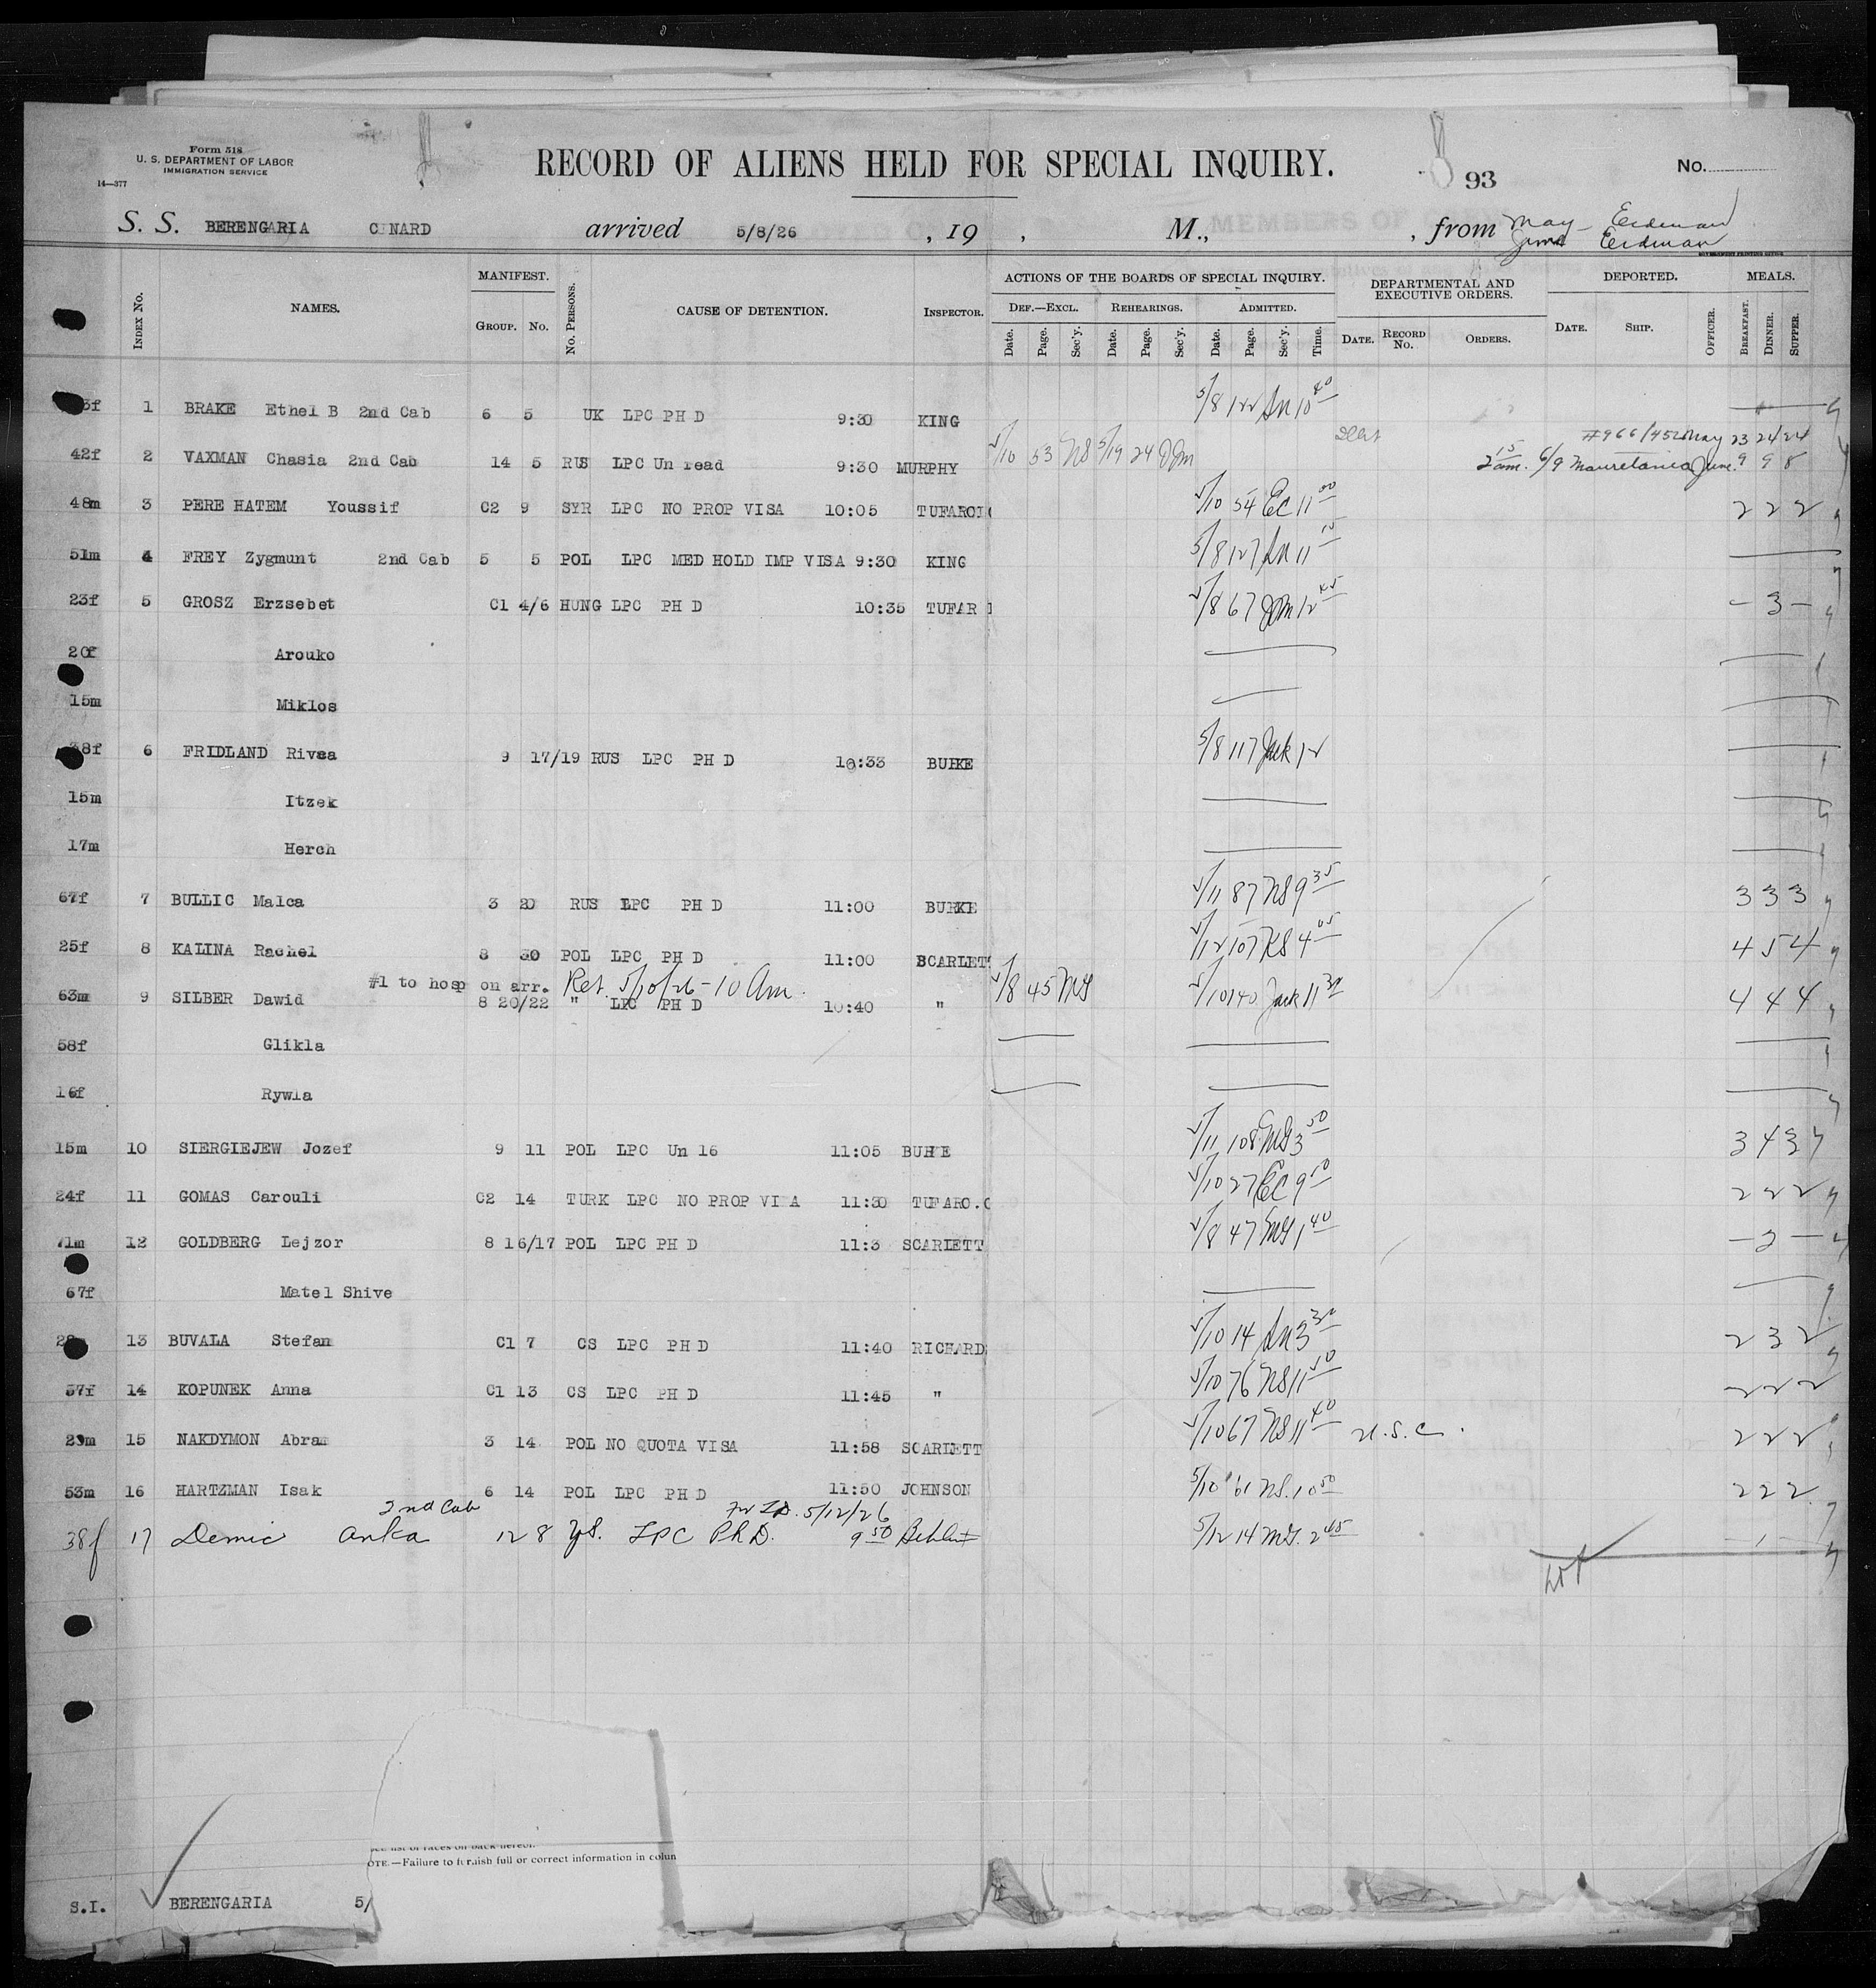 Form 518
U. S. DEPARTMENT OF LABOR
IMMIGRATION SERVICE
14—377
RECORD OF ALIENS HELD FOR SPECIAL INQUIRY.
93
No.
S. S. BERENGARIA CUNARD arrived 5/8/26 , 19 , M., , from May — Erdman
June Erdman
Index No. NAMES. MANIFEST. GROUP. NO. No. PERSONS. CAUSE OF DETENTION. INSPECTOR. ACTIONS OF THE BOARDS OF SPECIAL INQUIRY. DEF.—EXCL. REHEARINGS. ADMITTED. DEPARTMENTAL AND EXECUTIVE ORDERS. DEPORTED. MEALS.
Date. Page. Sec'y. Date. Page. Sec'y. Date. Page. Sec'y. Time. DATE. RECORD NO. ORDERS. DATE. SHIP. OFFICER. BREAKFAST. DINNER. SUPPER.
1 BRAKE Ethel B 2nd Cab 6 5 UK LPC PH D 9:30 KING 5/8 122 10 40
42f 2 VAXMAN Chasia 2nd Cab 14 5 RUS LPC Un read 9:30 MURPHY 5/10 53 NS 5/19 24 May 23 24 24
6/9 Mauretania June 9 9 8
48m 3 PERE HATEM Youssif C2 9 SYR LPC NO PROP VISA 10:05 5/10 54 EC 11 00 2 2 2
51m 4 FREY Zygmunt 2nd Cab 5 5 POL LPC MED HOLD IMP VISA 9:30 KING 5/8 127 11
23f 5 GROSZ Erzsebet C1 4/6 HUNG LPC PH D 10:35 5/8 67 12 45 — 3 —
20f Arouko
15m Miklos
38f 6 FRIDLAND Rivsa 9 17/19 RUS LPC PH D 10:33 BURKE 5/8 117 Jack 12
15m Itzek
17m Herch
67f 7 BULLIC Malca 3 20 RUS LPC PH D 11:00 BURKE 5/11 87 NS 9 35 3 3 3
25f 8 KALINA Rachel 8 30 POL LPC PH D 11:00 SCARLET 5/12 107 4 05 4 5 4
#1 to hosp on arr. Ret 5/10/26 - 10 Am.
63m 9 SILBER Dawid 8 20/22 " LPC PH D 10:40 " 5/8 45 MG 5/10 140 Jack 11 30 4 4 4
58f Glikla
16f Rywla
15m 10 SIERGIEJEW Jozef 9 11 POL LPC Un 16 11:05 BURKE 5/11 108 MG 3 50 3 4 3
24f 11 GOMAS Carouli C2 14 TURK LPC NO PROP VI A 11:30 TUFARO. 5/10 27 EC 9 50 2 2 2
71m 12 GOLDBERG Lejzor 8 16/17 POL LPC PH D 11:3 SCARLETT 5/8 47 MG 1 40 — 2 —
67f Matel Shive
13 BUVALA Stefan C1 7 CS LPC PH D 11:40 RICHARD 5/10 14 3 30 2 3 2
57f 14 KOPUNEK Anna C1 13 CS LPC PH D 11:45 " 5/10 76 NS 11 50 2 2 2
29m 15 NAKDYMON Abram 3 14 POL NO QUOTA VISA 11:58 SCARLETT 5/10 67 NS 11 40 U.S.C. 2 2 2
53m 16 HARTZMAN Isak 6 14 POL LPC PH D 11:50 JOHNSON 5/10 61 NS. 10 50 2 2 2
2nd Cab 5/12/26
38f 17 Demic Anka 12 8 LPC Ph D. 9 50 5/12 14 MG. 2 45 — 1 —
OTE.—Failure to furnish full or correct information in colum
S.I. BERENGARIA 5/